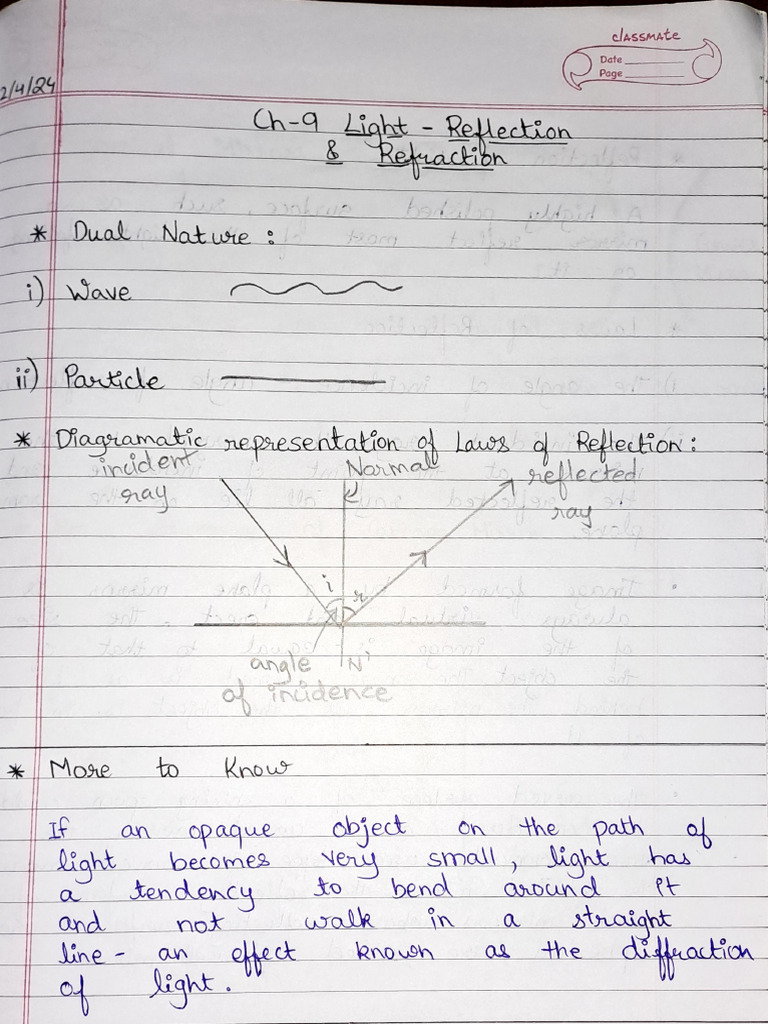 classmate
Date
Page
2/4/24
Ch-9 Light - Reflection
& Refraction
* Dual Nature :
i) Wave
ii) Particle
* Diagramatic representation of Laws of Reflection :
incident
ray
Normal
reflected
ray
i
r
angle
of incidence
N'
* More to Know
If an opaque object on the path of
light becomes very small, light has
a tendency to bend around it
and not walk in a straight
line - an effect known as the diffraction
of light.